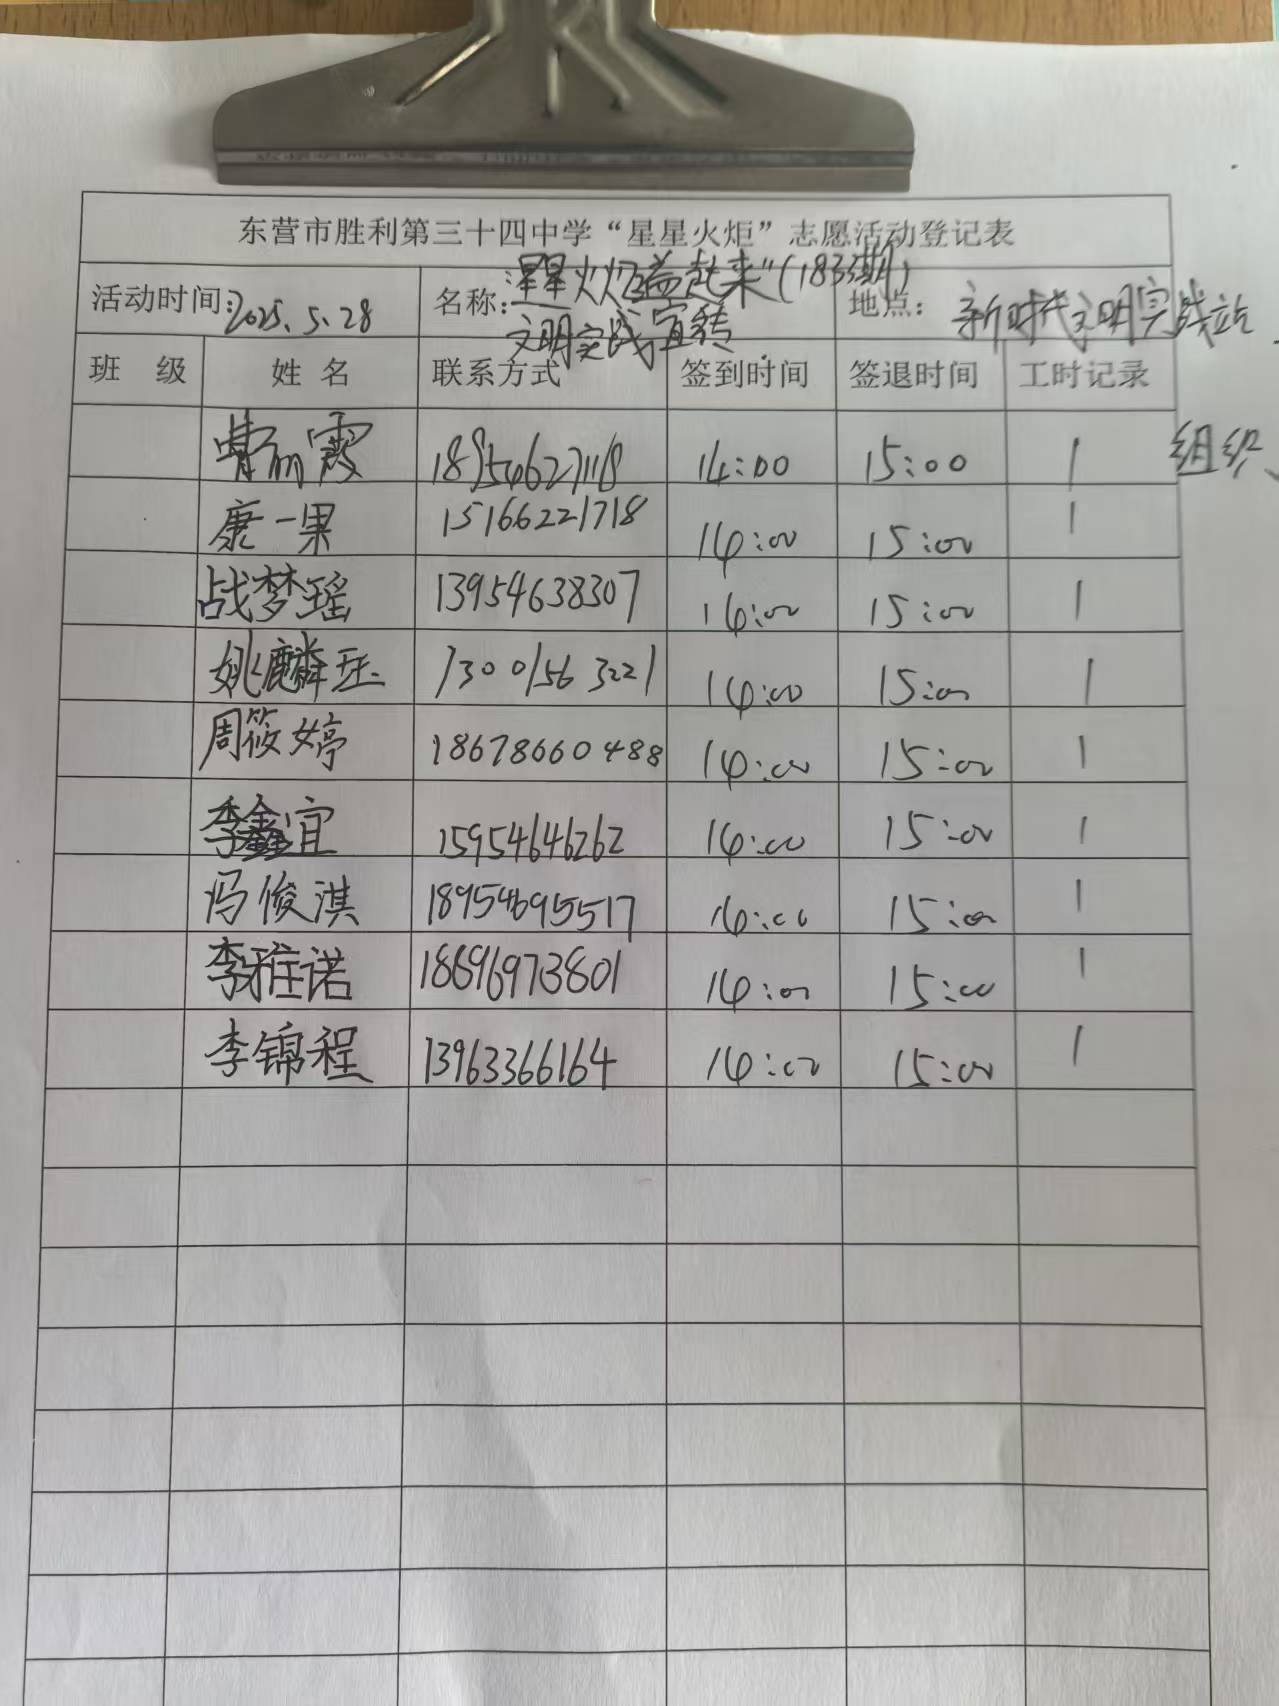 东营市胜利第三十四中学“星星火炬”志愿活动登记表
活动时间：2025.5.28 名称：“星星火炬益起来”(183期) 文明实践宣传 地点：新时代文明实践站
班 级 姓 名 联系方式 签到时间 签退时间 工时记录
曹丽霞 18954627118 14:00 15:00 1 组织
康一果 15166221718 14:00 15:00 1
战梦瑶 13954638307 14:00 15:00 1
姚麟珏 13001563221 14:00 15:00 1
周筱婷 18678660488 14:00 15:00 1
李鑫宜 15954646262 14:00 15:00 1
冯俊淇 18954695517 14:00 15:00 1
李雅诺 18696973801 14:00 15:00 1
李锦程 13963366164 14:00 15:00 1